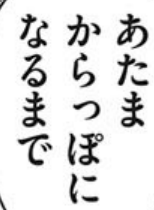 あたま
からっぽに
なるまで